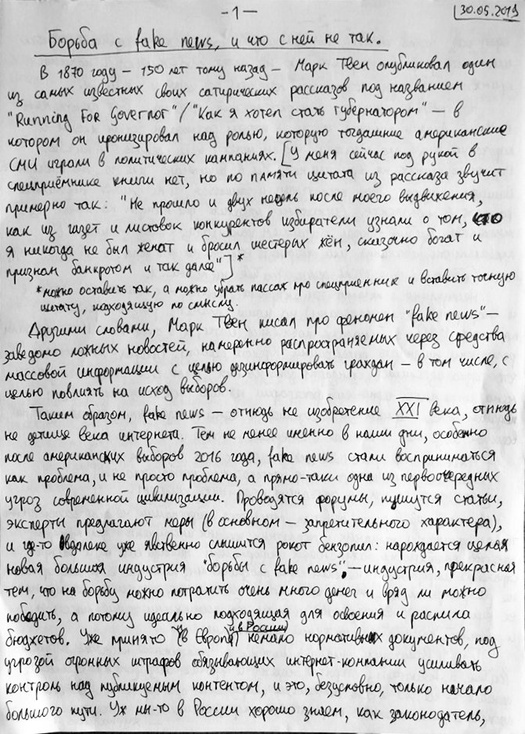 -1-
30.05.2019
Борьба с fake news, и что с ней не так.
В 1870 году – 150 лет тому назад – Марк Твен опубликовал один
из самых известных своих сатирических рассказов под названием
"Running For Governor" / "Как я хотел стать губернатором" – в
котором он иронизировал над ролью, которую тогдашние американские
СМИ играли в политических кампаниях. [У меня сейчас под рукой в
спецприёмнике книги нет, но по памяти цитата из рассказа звучит
примерно так: "Не прошло и двух недель после моего выдвижения,
как из газет и листовок конкурентов избиратели узнали о том, что
я никогда не был женат и бросил шестерых жён, сказочно богат и
признан банкротом и так далее"]*
*можно оставить так, а можно убрать пассаж про спецприемник и вставить точную
цитату, подходящую по смыслу.
Другими словами, Марк Твен писал про феномен "fake news" –
заведомо ложных новостей, намеренно распространяемых через средства
массовой информации с целью дезинформировать граждан – в том числе, с
целью повлиять на исход выборов.
Таким образом, fake news – отнюдь не изобретение XXI века, отнюдь
не детище века интернета. Тем не менее именно в наши дни, особенно
после американских выборов 2016 года, fake news стали восприниматься
как проблема, и не просто проблема, а прямо-таки одна из первоочередных
угроз современной цивилизации. Проводятся форумы, пишутся статьи,
эксперты предлагают меры (в основном – запретительного характера),
и где-то вдалеке уже явственно слышится рокот бензопил: нарождается целая
новая большая индустрия "борьбы с fake news", – индустрия, прекрасная
тем, что на борьбу можно потратить очень много денег и вряд ли можно
победить, а потому идеально подходящая для освоения и распила
бюджетов. Уже принято (в Европе и в России) немало нормативных документов, под
угрозой огромных штрафов обязывающих интернет-компании усиливать
контроль над публикуемым контентом, и это, безусловно, только начало
большого пути. Уж мы-то в России хорошо знаем, как законодатель,